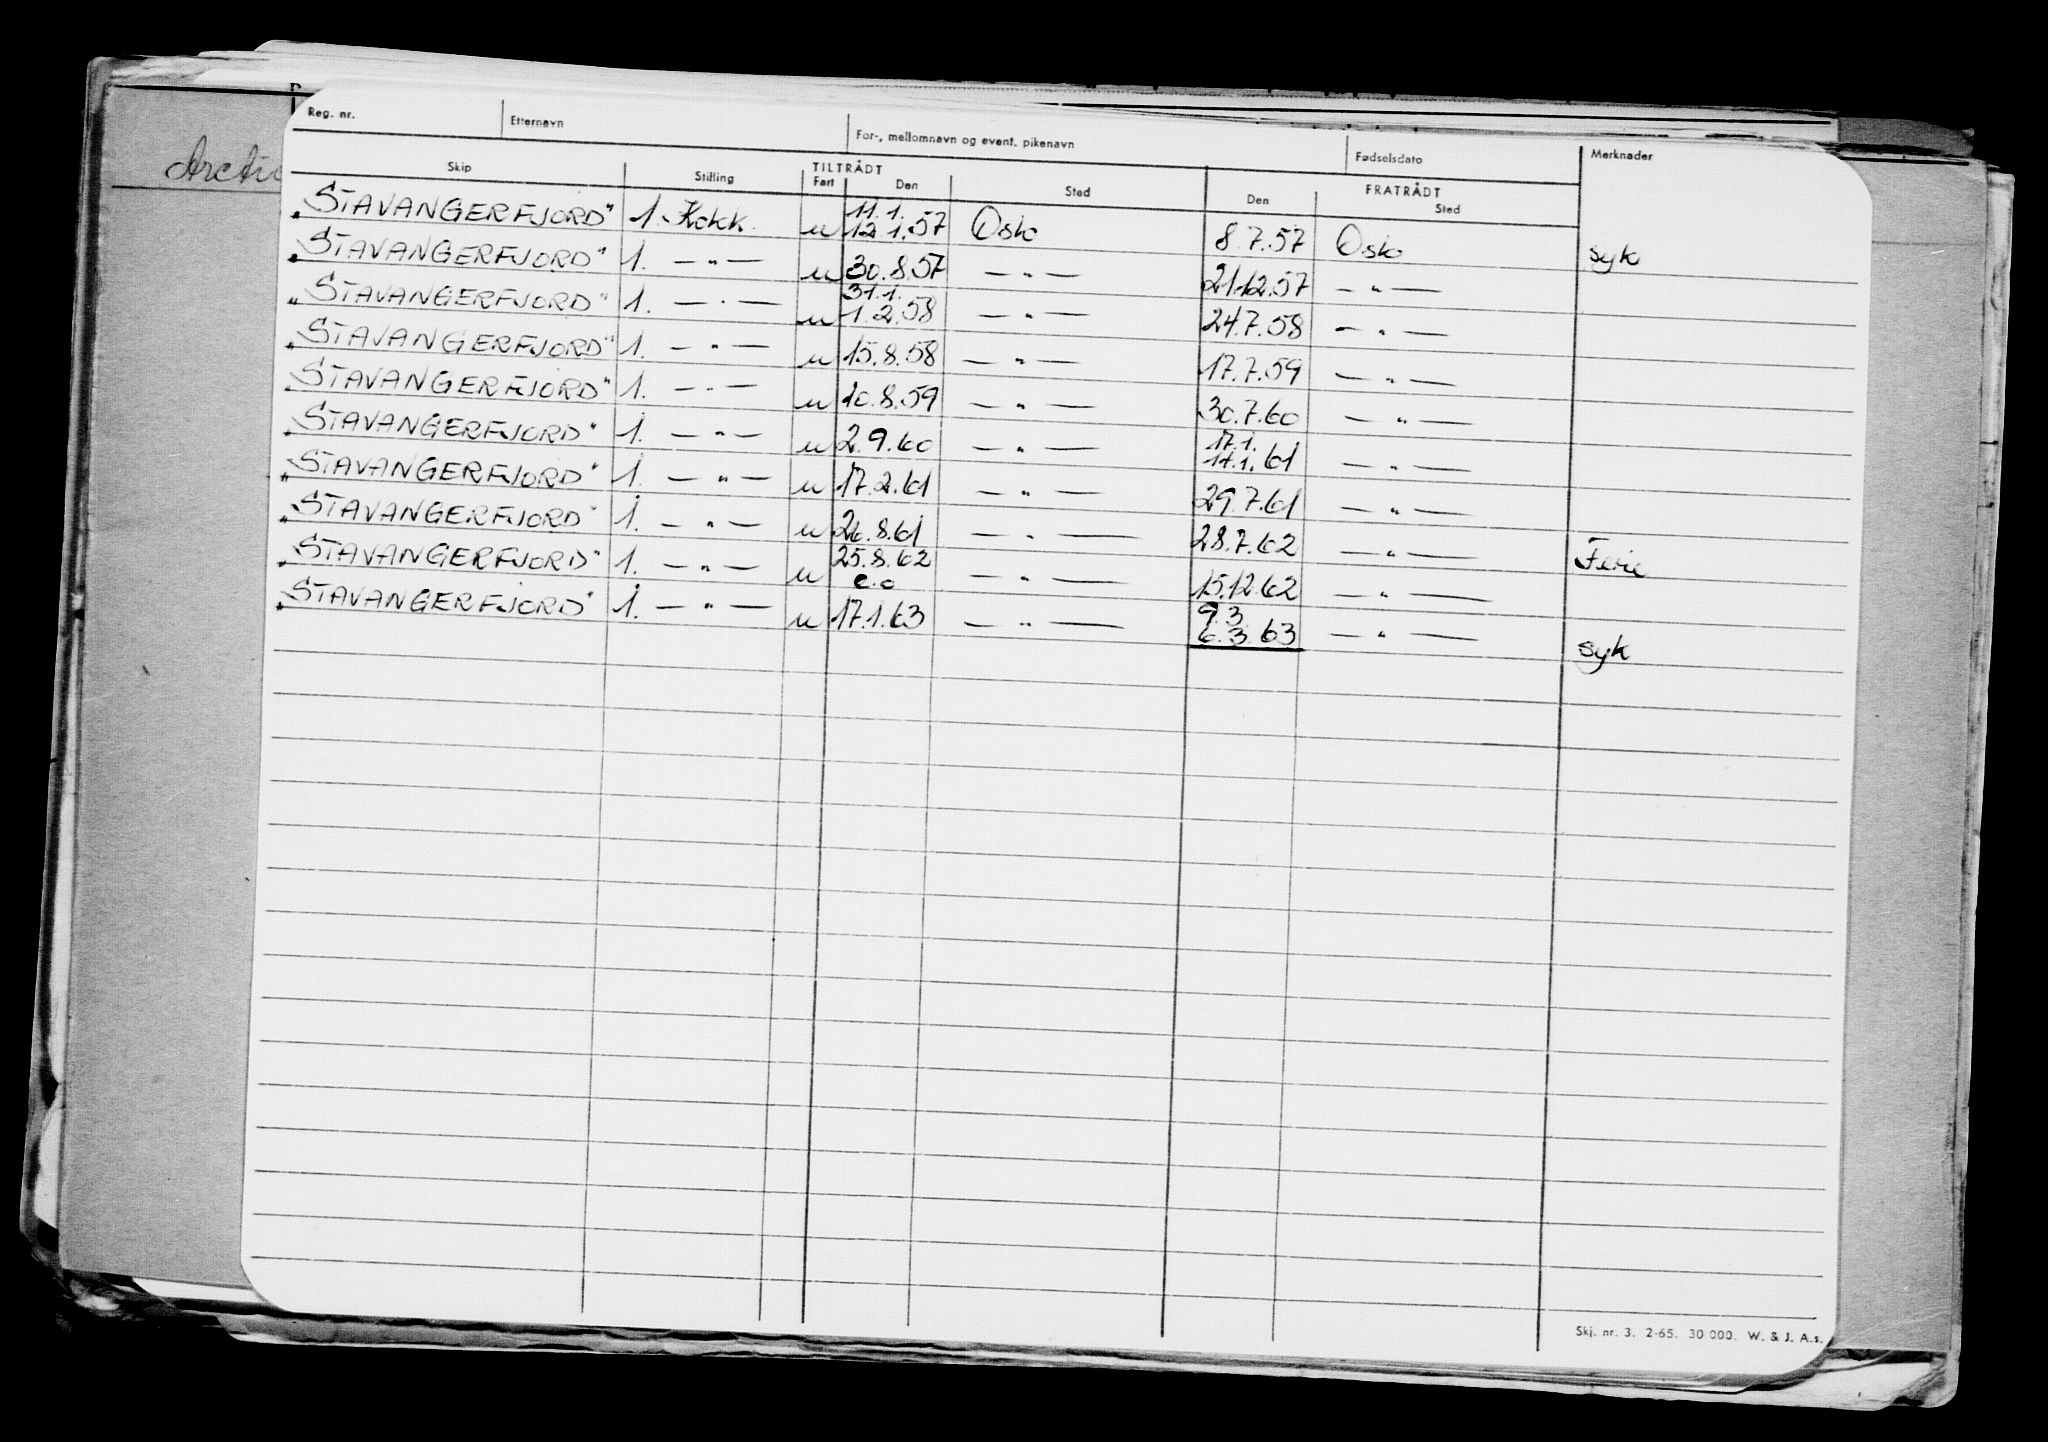 Arctic
Reg. nr. Etternavn For-, mellomnavn og event. pikenavn Fødselsdato Merknader
TILTRÅDT FRATRÅDT
Skip Stilling Fart Den Sted Den Sted
11.1.
„STAVANGERFJORD" 1. Kokk u 12.1.57 Oslo 8.7.57 Oslo syk
„STAVANGERFJORD" 1. — " — u 30.8.57 — " — 21.12.57 — " —
31.1.
„STAVANGERFJORD" 1. — " — u 1.2.58 — " — 24.7.58 — " —
„STAVANGERFJORD" 1. — " — u 15.8.58 — " — 17.7.59 — " —
„STAVANGERFJORD" 1. — " — u 10.8.59 — " — 30.7.60 — " —
17.1.
„STAVANGERFJORD" 1. — " — u 2.9.60 — " — 14.1.61 — " —
„STAVANGERFJORD" 1. — " — u 17.2.61 — " — 29.7.61 — " —
„STAVANGERFJORD" 1. — " — u 26.8.61 — " — 28.7.62 — " — Ferie
25.8.62
„STAVANGERFJORD" 1. — " — u c.o — " — 15.12.62 — " —
9.3.
„STAVANGERFJORD" 1. — " — u 17.1.63 — " — 6.3.63 — " — syk
Skj. nr. 3. 2-65. 30 000. W. & J. A.s.